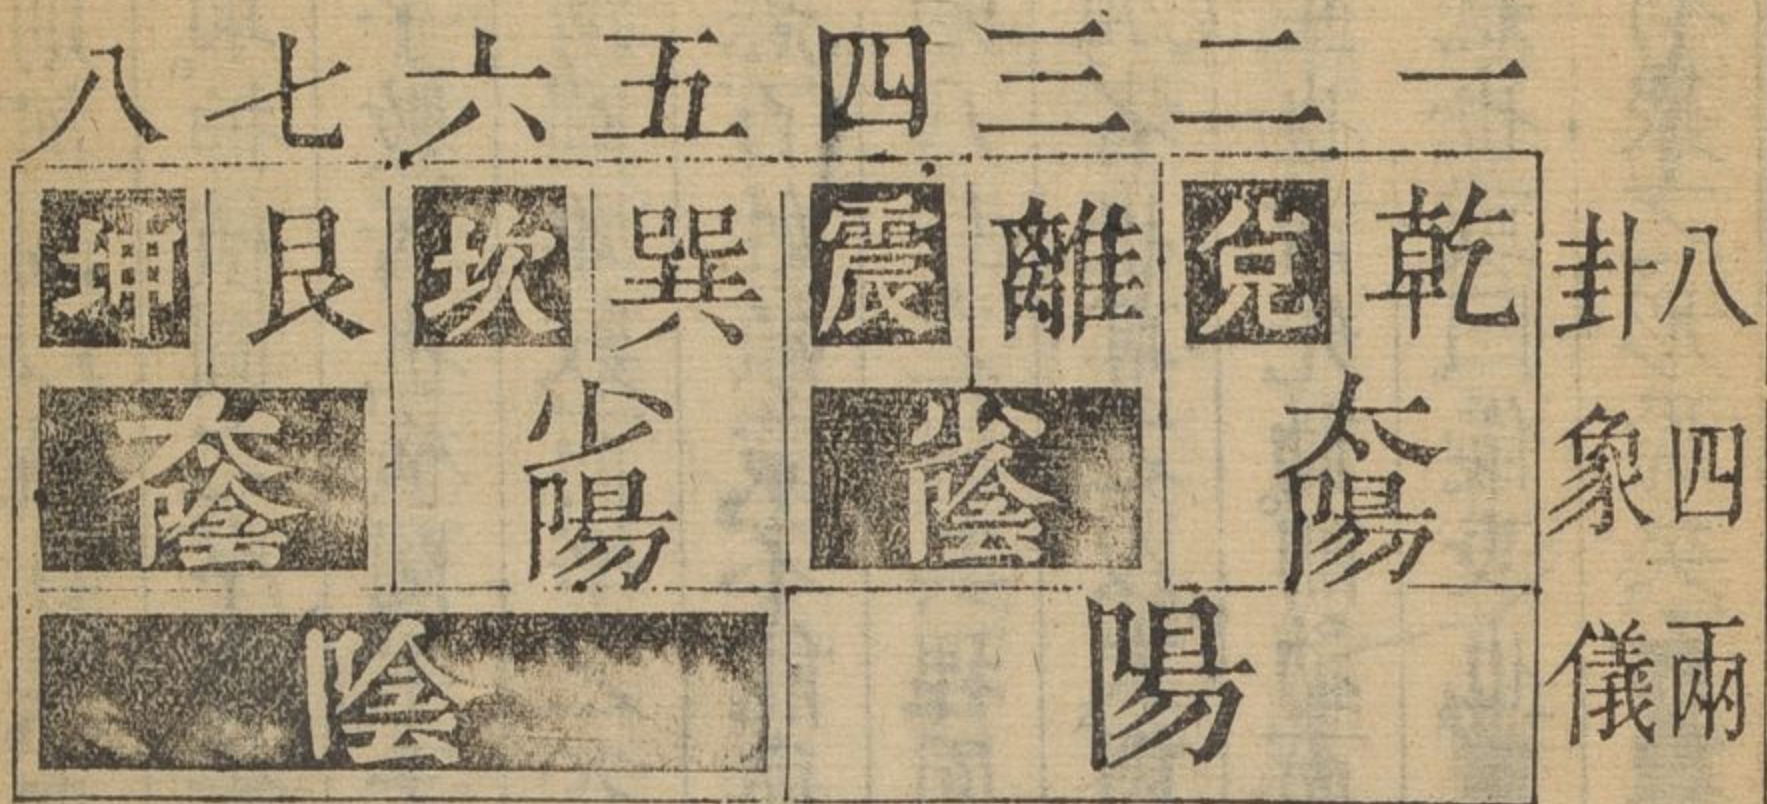 一 二 三 四 五 六 七 八
八卦 乾 兌 離 震 巽 坎 艮 坤
四象 太陽 少陰 少陽 太陰
兩儀 陽 陰